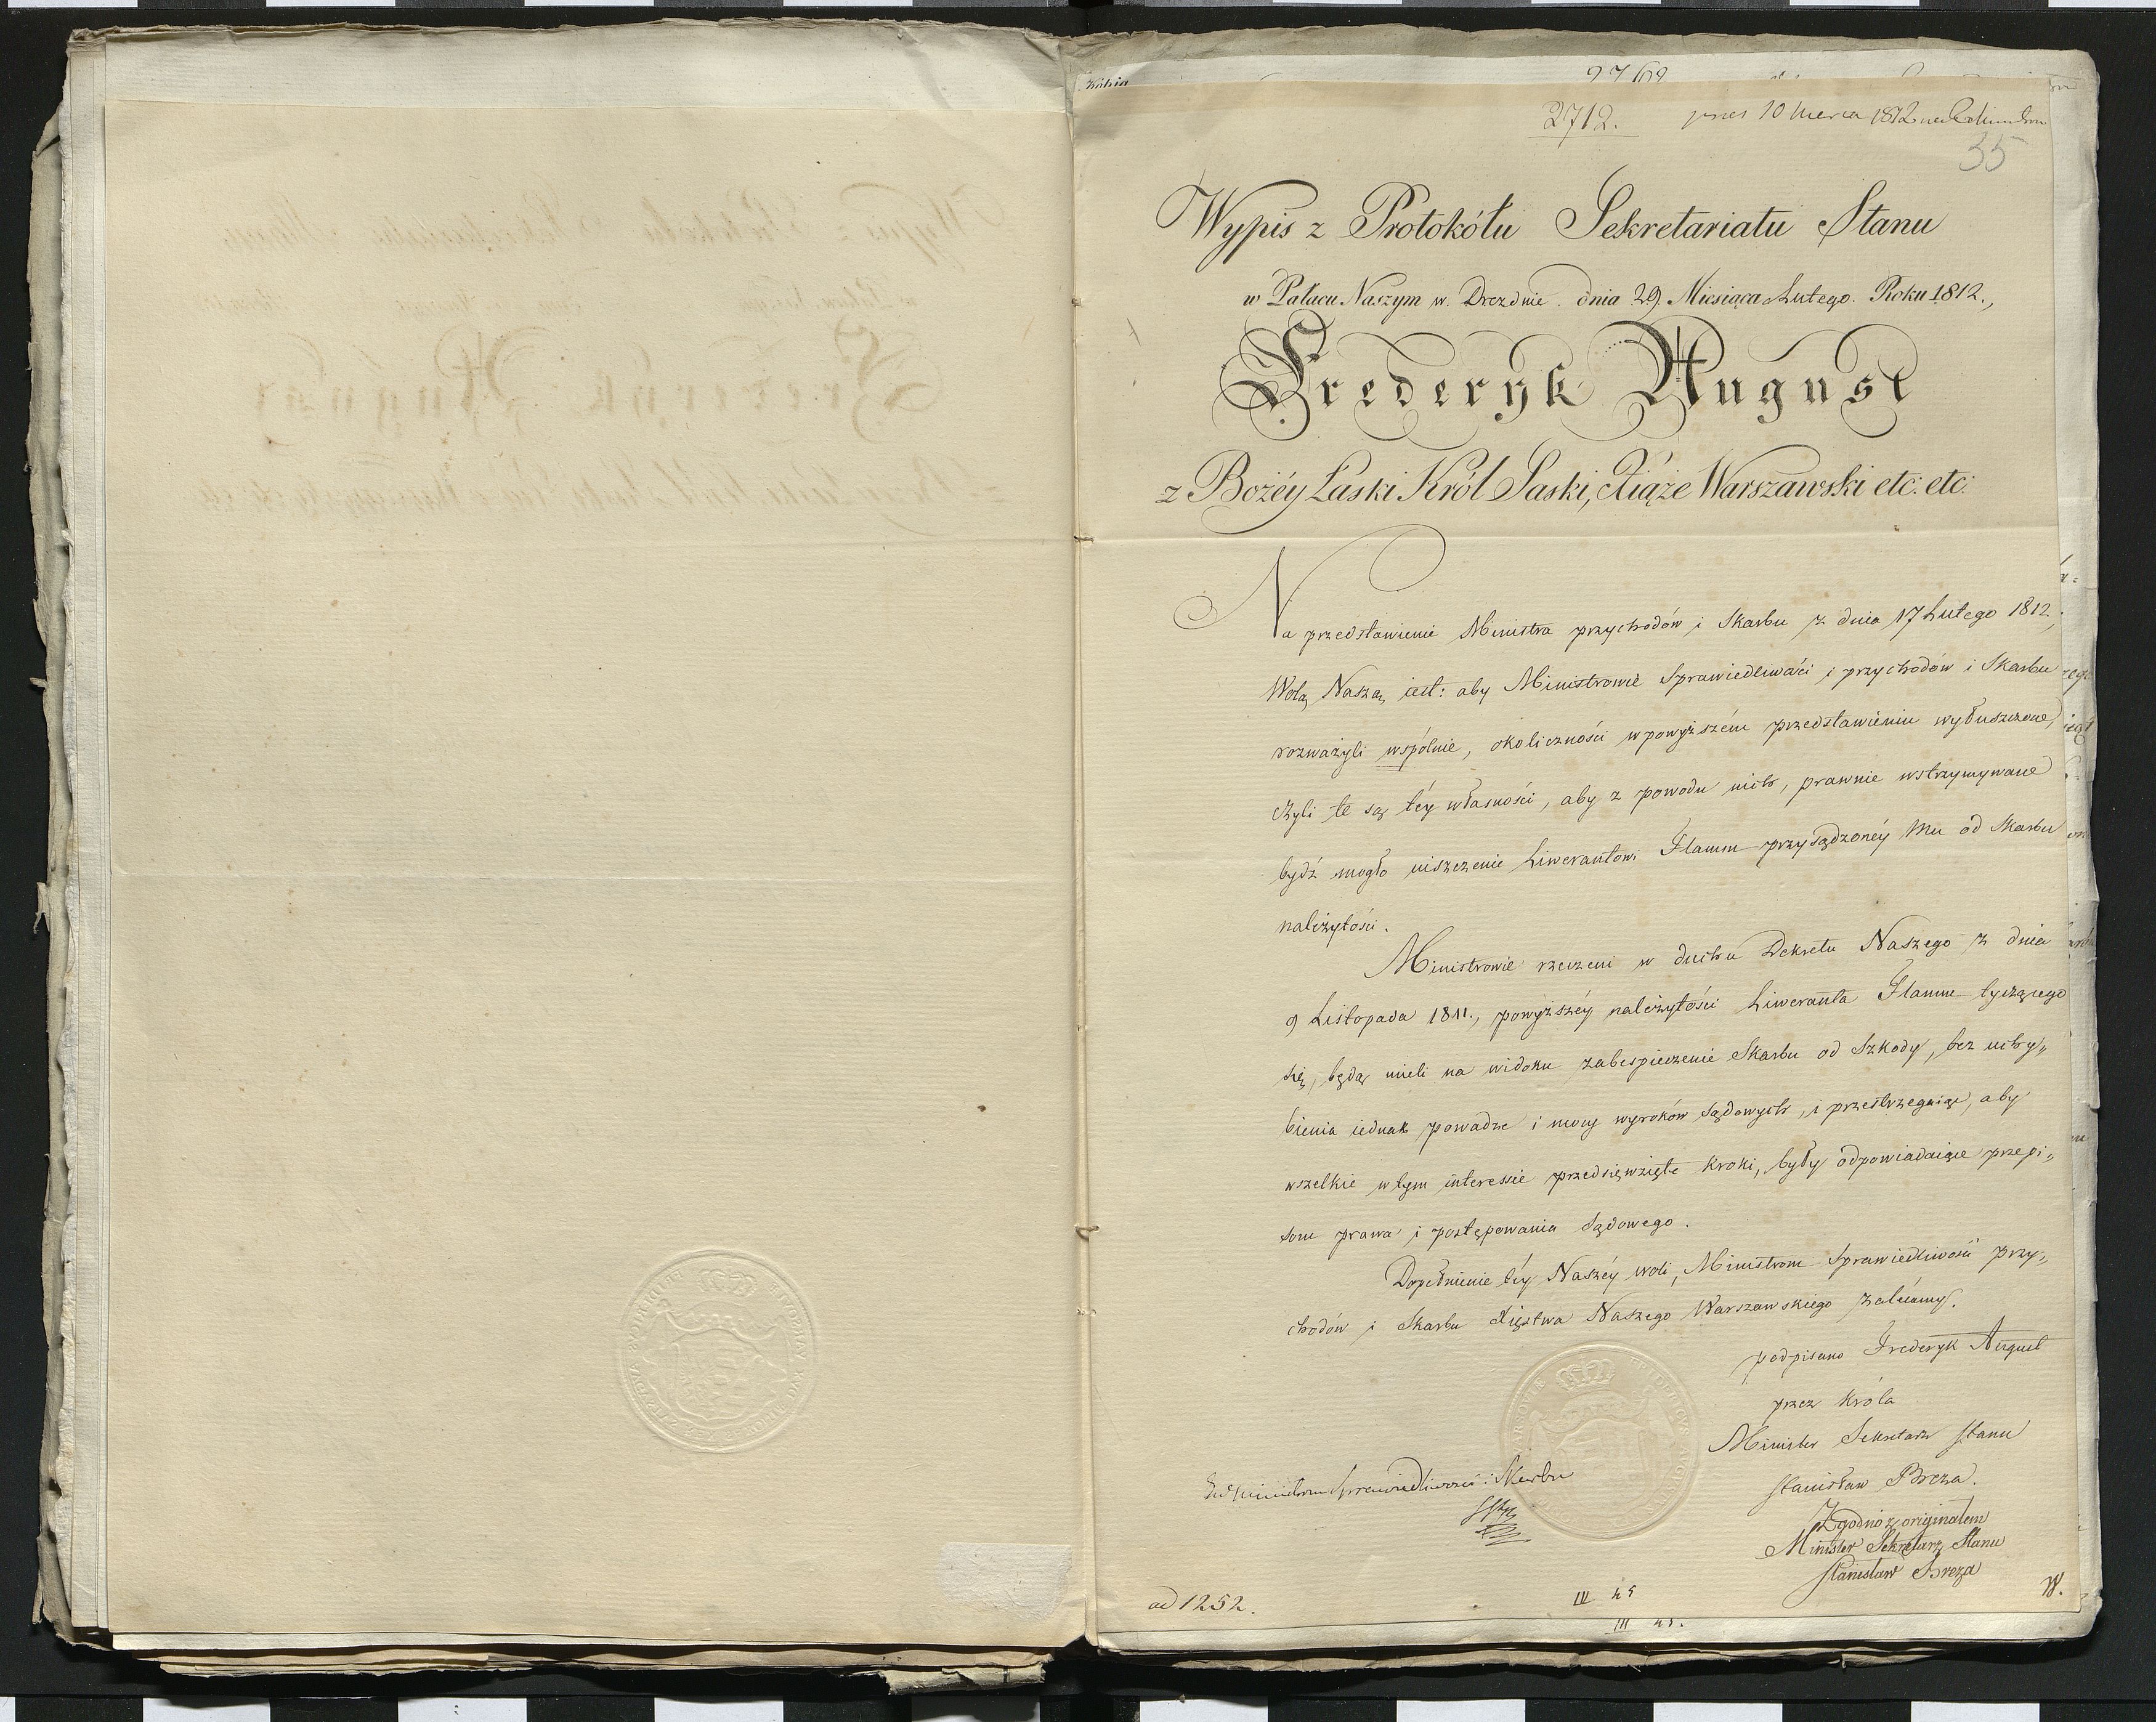 2712.
10 Marca 1812
35
Wypis z Protokółu Sekretariatu Stanu
w Pałacu Naszym w. Dreźnie. dnia 29. Miesiąca Lutego. Roku 1812.,
Frederyk August
z Bożéy Łaski Król Saski, Xiąże Warszawski etc: etc:
Na przedstawienie Ministra przychodów i Skarbu z dnia 17 Lutego 1812,
Wolą Naszą iest: aby Ministrowie Sprawiedliwości i przychodów i Skarbu
rozważyli wspólnie, okoliczności w powyższém przedstawieniu wyłuszczone,
czyli te są téy własności, aby z powodu nich, prawnie wstrzymywane
bydź mogło uiszczenie Liwerantowi Flamm przysądzonéy Mu od Skarbu
należytości.
Ministrowie rzeczeni w duchu Dekretu Naszego z dnia
9 Listopada 1811., powyższéy należytości Liweranta Flamm tyczącego
się, będą mieli na widoku zabespieczenie Skarbu od Szkody, bez uchy„
bienia iednak powadze i mocy wyroków Sądowych, i przestrzegaiąc, aby
wszelkie w tym interessie przedsięwzięte kroki, były odpowiadaiące przepi„
som prawa i postępowania Sądowego.
Dopełnienie téy Naszéy woli, Ministrom Sprawiedliwości przy„
chodów i Skarbu Xięstwa Naszego Warszawskiego zalécamy.
podpisano Frederyk August
przez Króla
Minister Sekretarz Stanu
Stanisław Breza.
Zgodno z originałem
Minister Sekretarz Stanu
Stanisław Breza
Sprawiedliwości i Skarbu
ad 1252.
III 45
III 45.
W.